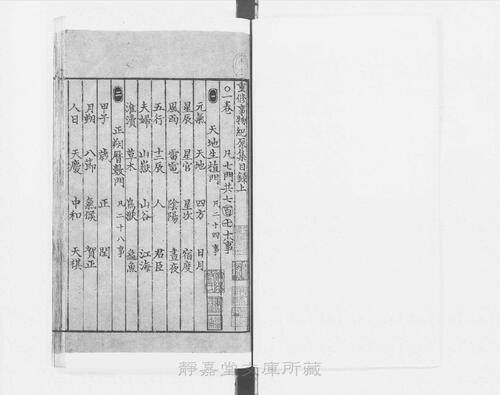 重修事物紀原集目録上
〇一卷 凡七門共七百七十六事
一 天地生植門 凡二十四事
元氣 天地 四方 日月
星辰 星官 星次 宿度
風雨 雷電 陰陽 晝夜
五行 十二辰 人 君臣
夫婦 山嶽 山谷 江海
淮瀆 草木 鳥獸 蟲魚
二 正朔曆數門 凡二十八事
甲子 歲 正 閏
月朔 八節 氣候 賀正
人日 天慶 中和 天祺
靜嘉堂文庫所藏